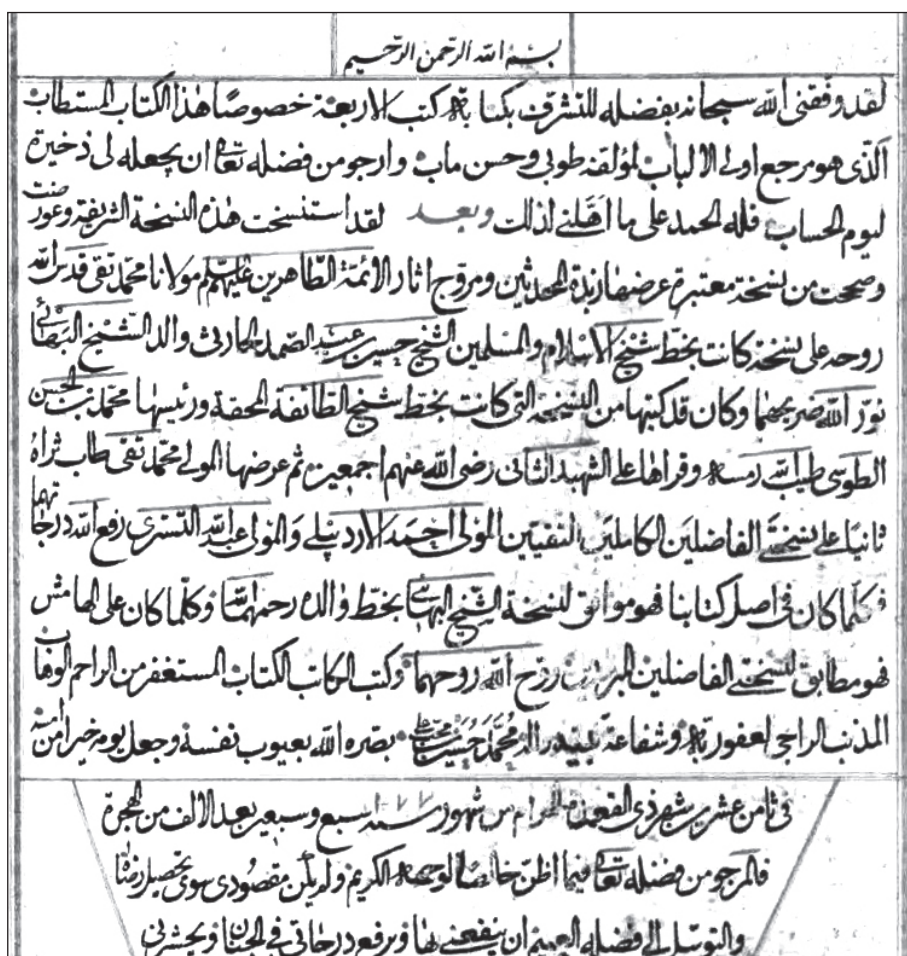 بسم الله الرحمن الرحيم
لقد وفقني الله سبحانه بفضله للتشرف بكتابة كتب الاربعة خصوصًا هذا الكتاب المستطاب
الذي هو مرجع اولي الالباب لمؤلفه طوبى وحسن ماب وارجو من فضله تعا ان يجعله لي ذخيرة
ليوم الحساب فلله الحمد على ما اهلني لذلك وبعد لقد استنسخت هذه النسخة الشريفة وعورضت
وصححت من نسخة معتبرة عرضها زبدة المحدثين ومروج اثار الائمة الطاهرين عليهم مولانا محمد تقي قدس الله
روحه على نسخة كانت بخط شيخ الاسلام والمسلمين الشيخ حسين بن عبد الصمد الحارثي والد الشيخ البهائي
نور الله ضريحهما وكان قد كتبها من النسخة التي كانت بخط شيخ الطائفة المحقة ورئيسها محمد بن الحسن
الطوسي طيب الله رمسه وقراها على الشهيد الثاني رضي الله عنهم اجمعين ثم عرضها المولى محمد تقي طاب ثراه
ثانيا على نسختي الفاضلين الكاملين التقيين المولى احمد الاردبيلي والمولى عبد الله التستري رفع الله درجاتهما
فكلما كان في اصل كتابنا فهو موافق لنسخة الشيخ البهائي بخط والده رحمهما الله وكلما كان على الهامش
فهو مطابق لنسختي الفاضلين روح الله روحهما وكتب الكاتب الكتاب المستغفر من الراحم الوهاب
المذنب الراجي لعفو ربه وشفاعة محمد حسين بصره الله بعيوب نفسه وجعل يومه خيرا من امسه
في ثامن عشرين شهر ذي القعدة الحرام من شهور سنه سبع وسبعين بعد الالف من الهجرة
فالمرجو من فضله تعا فيما اظن خالصا لوجهه الكريم ولم يكن مقصودي سوى تحصيل رضاه
والتوسل الى فضله العميم ان ينفعني بها ويرفع درجاتي في الجنان ويحشرني